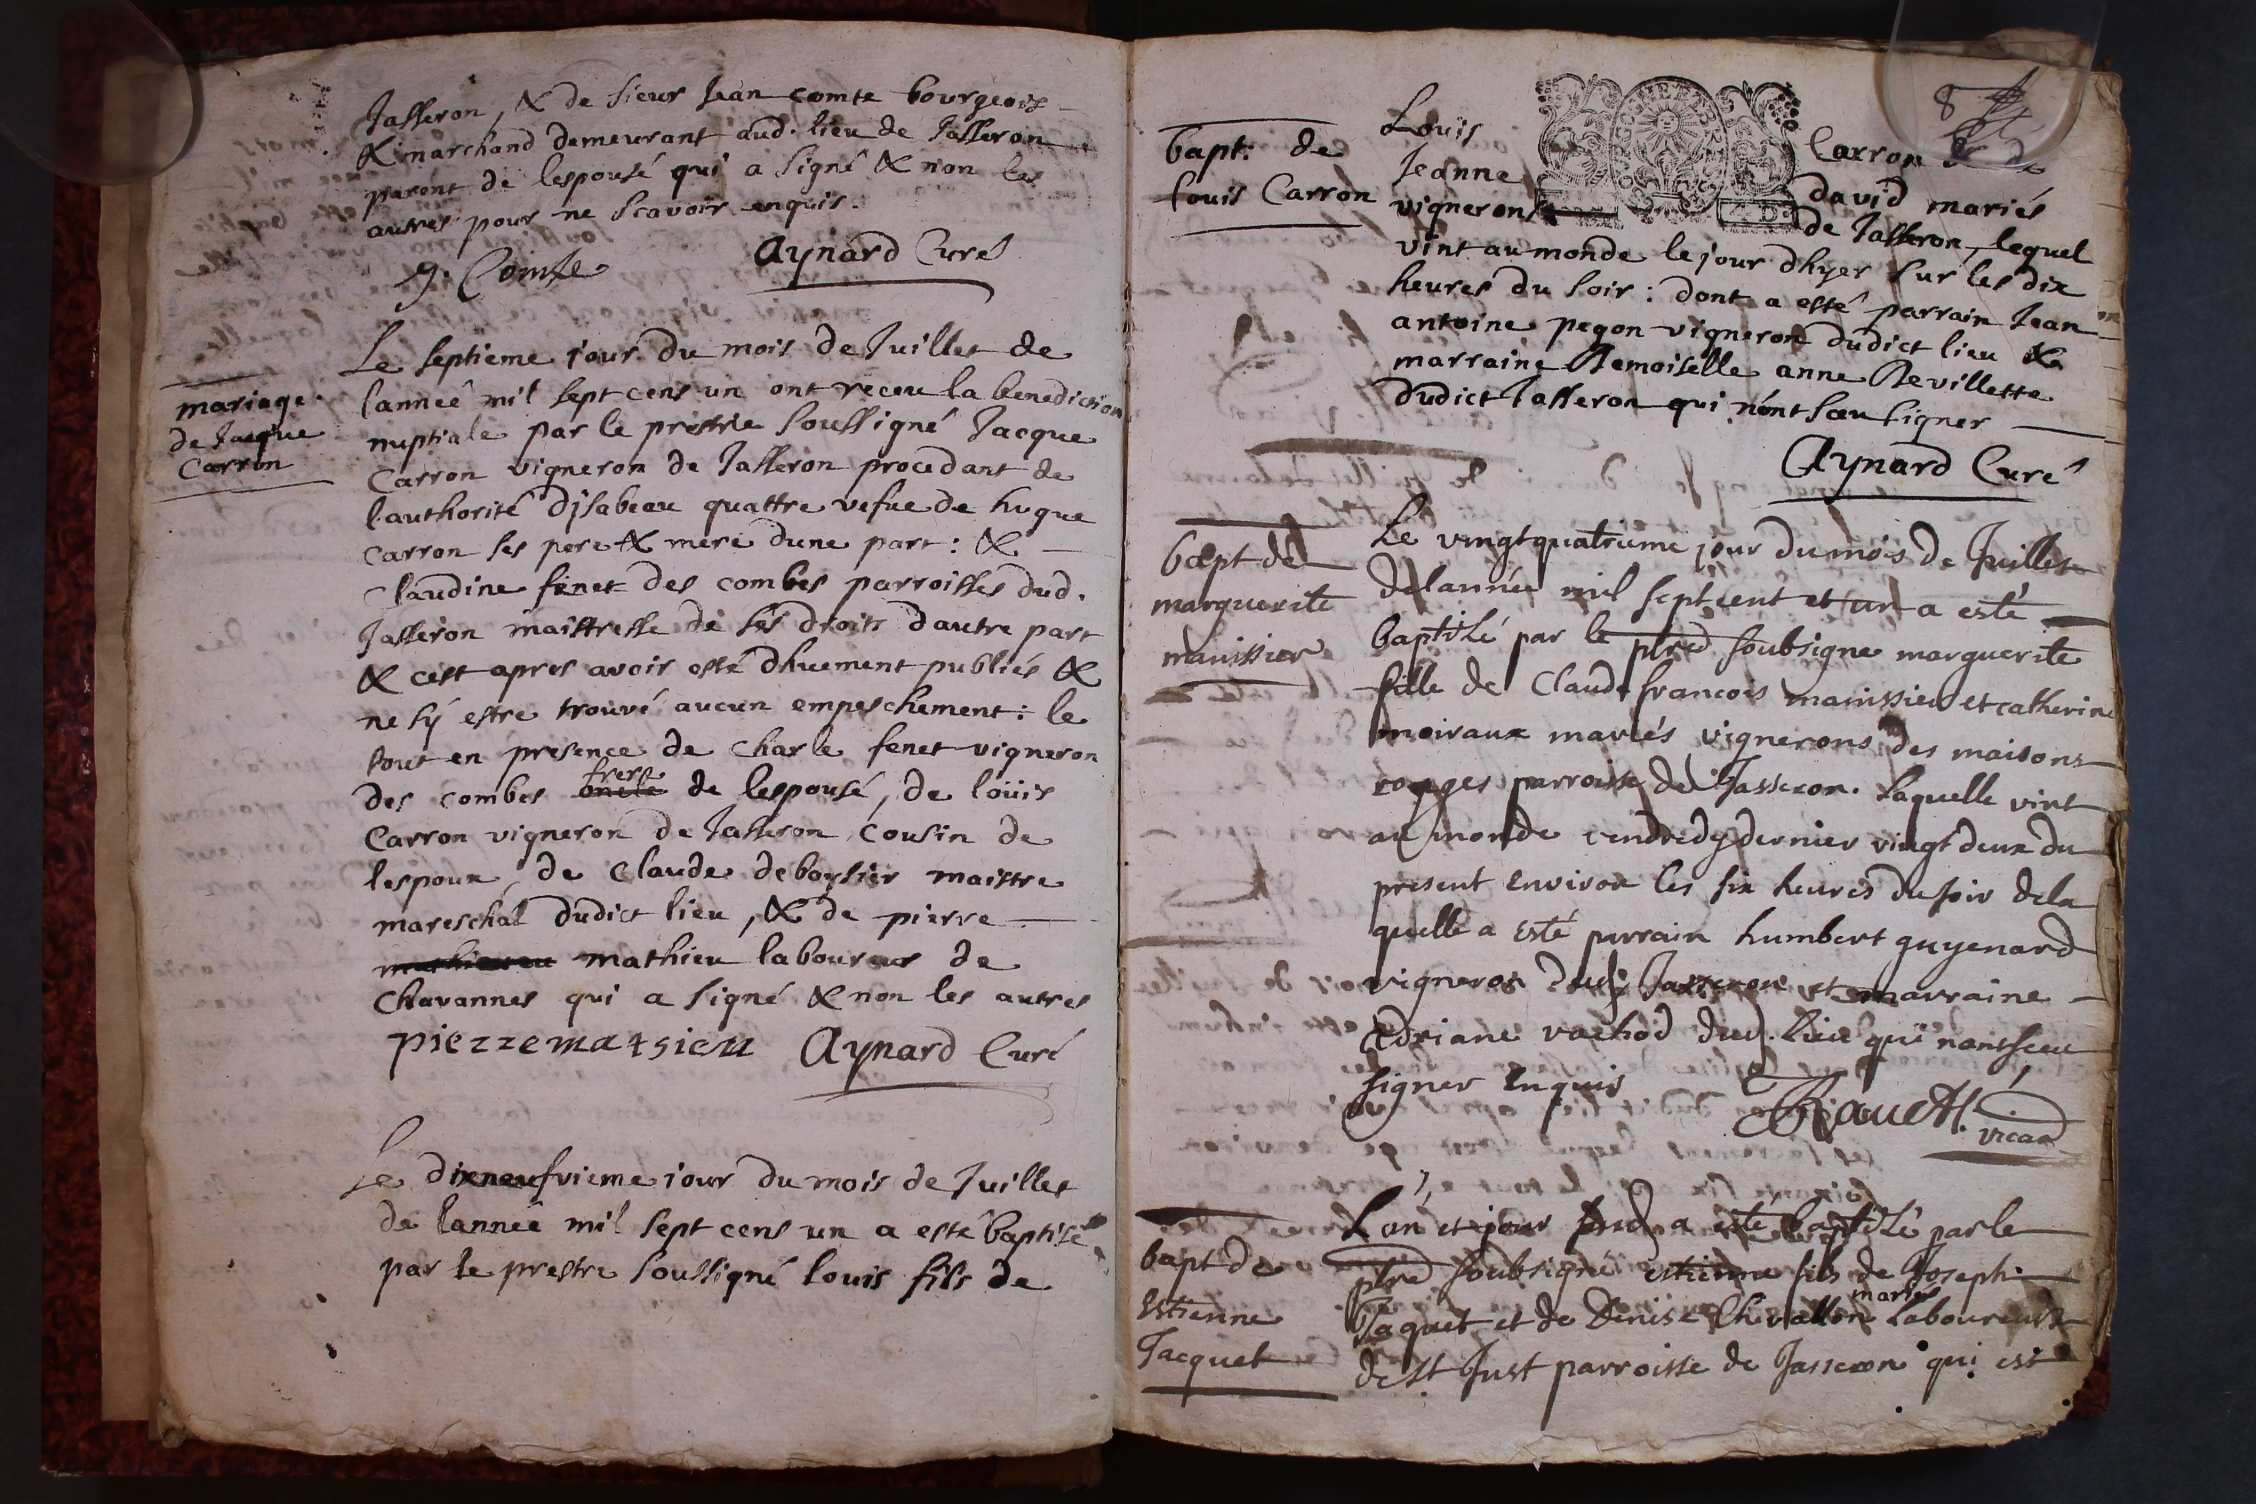 Jasseron, & de sieur Jean comte bourgeois
& marchand demeurant aud. lieu de Jasseron
parent de lespousé qui a signé & non les
autres pour ne scavoir enquis.
J. Comte Aynard Curé
mariage
de Jacque
Carron
Le septieme jour du mois de Juillet de
lanneé mil sept cens un ont receu la benediction
nuptiale par le prestre soussigné Jacque
Carron vigneron de Jasseron procedant de
l'authorité djsabeau quattre vefue de hugue
carron ses pere & mere dune part : &
Claudine fenet des combes parroisses dud.
Jasseron maistresse de ses droits dautre part
& cest apres avoir esté dhuement publiés &
ne sÿ estre trouvé aucun empeschement : le
tout en presence de Charle fenet vigneron
des combes oncle frere de lespousé, de loüis
Carron vigneron de Jasseron cousin de
lespoux, de Claude deborsier maistre
mareschal dudict lieu, & de pierre
mathieu laboureur de
Chavannes qui a signé & non les autres
pierre matsieu Aynard Curé
Le dixneufvieme jour du mois de Juillet
de lanneé mil sept cens un a esté baptisé
par le prestre soussigné louis fils de
8
bapt: de
Louis Carron
Louis Carron & de
Jeanne david mariés
vignerons de Jasseron, lequel
vint au monde le jour dhyer sur les dix
heures du soir : dont a esté parrain Jean
antoine pegon vigneron dudict lieu &
marraine Demoiselle anne Devillette
dudict Jasseron qui nónt sceu signer
Aynard Curé
bapt de
marguerite
manissier
Le vingtquatrieme jour du mois de Juillet
delannée mil sept cent et un a esté
baptisé par le ptre soubsigne marguerite
fille de Claude francois manissier et catherine
moiraux mariés vignerons des maisons
rouges parroisse de Jasseron. laquelle vint
au monde vendredy dernier vingt deux du
present environ les six heures du soir dela
quelle a esté parrain humbert guyenard
vigneron dud Jasseron et marraine
Adriane vachod dud. lieu qui nont sceu
signer enquis
vicar
bapt de
Estienne
Jacquet
Lan et jour sud a esté baptisé par le
ptre soubsigné estienne fils de Joseph
Jaquet et de Denise Chevallon mariés laboureurs
de St Just parroisse de Jasseron qui est